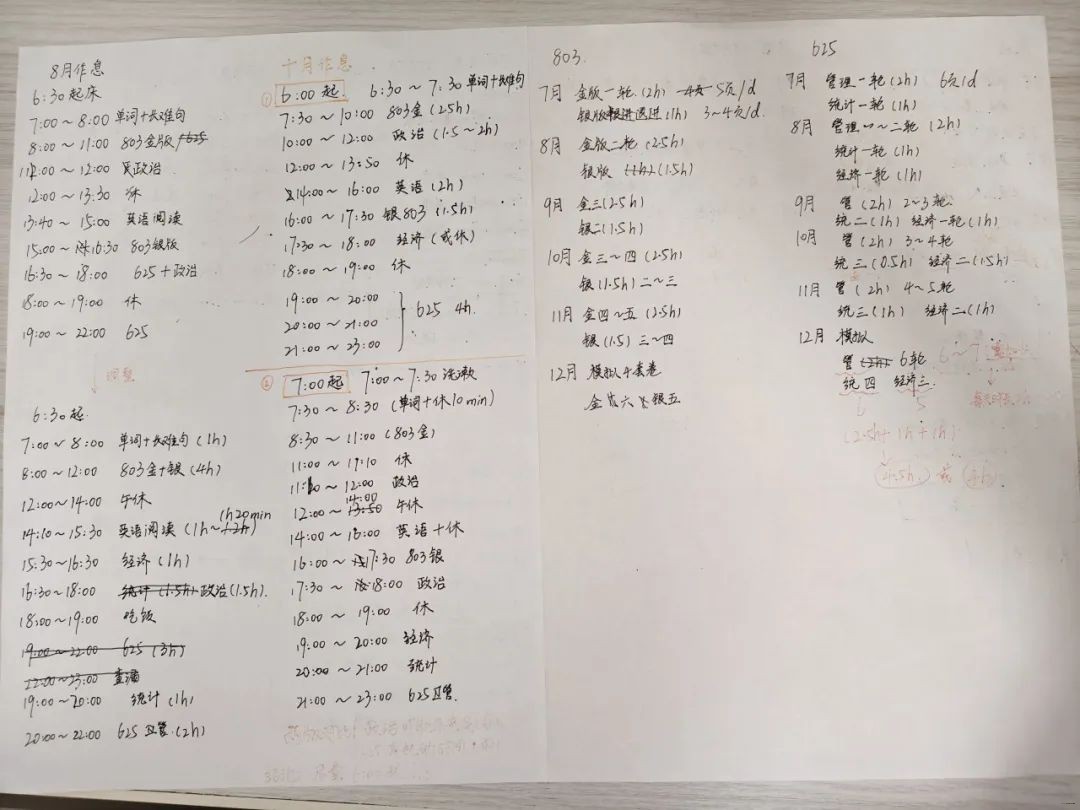 8月作息
6:30起床
7:00~8:00 单词+长难句
8:00~11:00 803金版
11:00~12:00 政治
12:00~13:30 休
13:40~15:00 英语阅读
15:00~16:30 803银版
16:30~18:00 625+政治
18:00~19:00 休
19:00~22:00 625
调整
6:30起.
7:00~8:00 单词+长难句(1h)
8:00~12:00 803金+银(4h)
12:00~14:00 午休
1h20min
14:10~15:30 英语阅读(1h~2h)
15:30~16:30 经济(1h)
16:30~18:00 统计(1.5h) 政治(1.5h).
18:00~19:00 吃饭
19:00~22:00 625(3h)
22:00~23:00
19:00~20:00 统计(1h)
20:00~22:00 625卫管.(2h)
十月作息
① 6:00起 6:30~7:30 单词+长难句
7:30~10:00 803金(2.5h)
10:00~12:00 政治(1.5~2h)
12:00~13:50 休
14:00~16:00 英语(2h)
16:00~17:30 银803(1.5h)
17:30~18:00 经济(或休)
18:00~19:00 休
19:00~20:00
20:00~21:00 625 4h.
21:00~23:00
② 7:00起 7:00~7:30 洗漱
7:30~8:30 (单词+休10min)
8:30~11:00 (803金)
11:00~11:10 休
11:10~12:00 政治
14:00
12:00~13:50 午休
14:00~16:00 英语+休
16:00~17:30 803银
17:30~18:00 政治
18:00~19:00 休
19:00~20:00 经济
20:00~21:00 统计
21:00~23:00 625卫管.
803.
7月 金版一轮(2h) 4页 5页/d
银版跟进(1h) 3~4页/d.
8月 金版二轮(2.5h)
银版 (1h)(1.5h)
9月 金三(2.5h)
银二(1.5h)
10月 金三~四(2.5h)
银(1.5h)二~三
11月 金四~五(2.5h)
银(1.5)三~四
12月 模拟 套卷
金六 银五
625
7月 管理一轮(2h) 6页/d
统计一轮(1h)
8月 管理一~二轮(2h)
统计一轮(1h)
经济一轮(1h)
9月 管(2h) 2~3轮.
统二(1h) 经济一轮(1h)
10月 管(2h) 3~4轮
统三(0.5h) 经济二(1.5h)
11月 管(2h) 4~5轮
统三(1h) 经济二(1h)
12月 模拟
管(2h) 6轮 6~7
统四 经济三.
6 5
(2.5h+1h+1h)
4.5h. 或